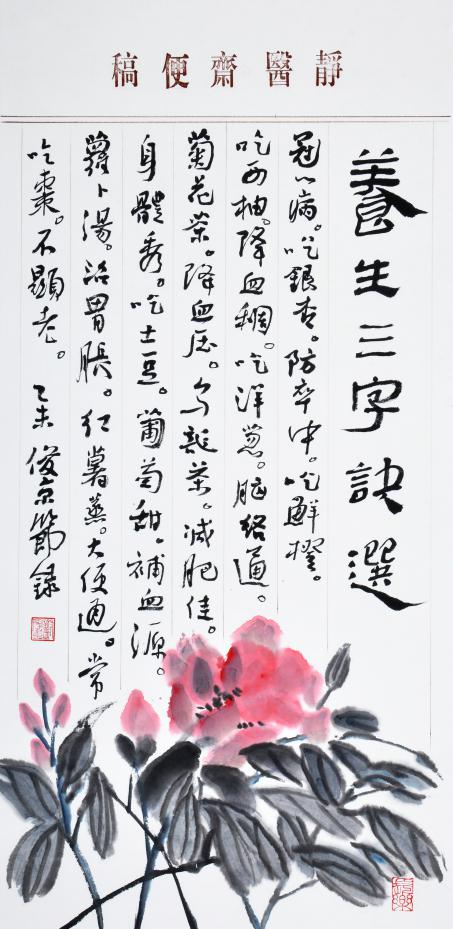 靜醫齋便稿
養生三字訣選
冠心病。吃銀杏。防卒中。吃鮮橙。
吃西柚。降血稠。吃洋葱。脑絡通。
菊花茶。降血压。乌龍茶。減肥佳。
身體秀。吃土豆。葡萄甜。補血源。
蘿卜湯。治胃脹。红薯蒸。大便通。常
吃棗。不顯老。 乙未 俊京節録